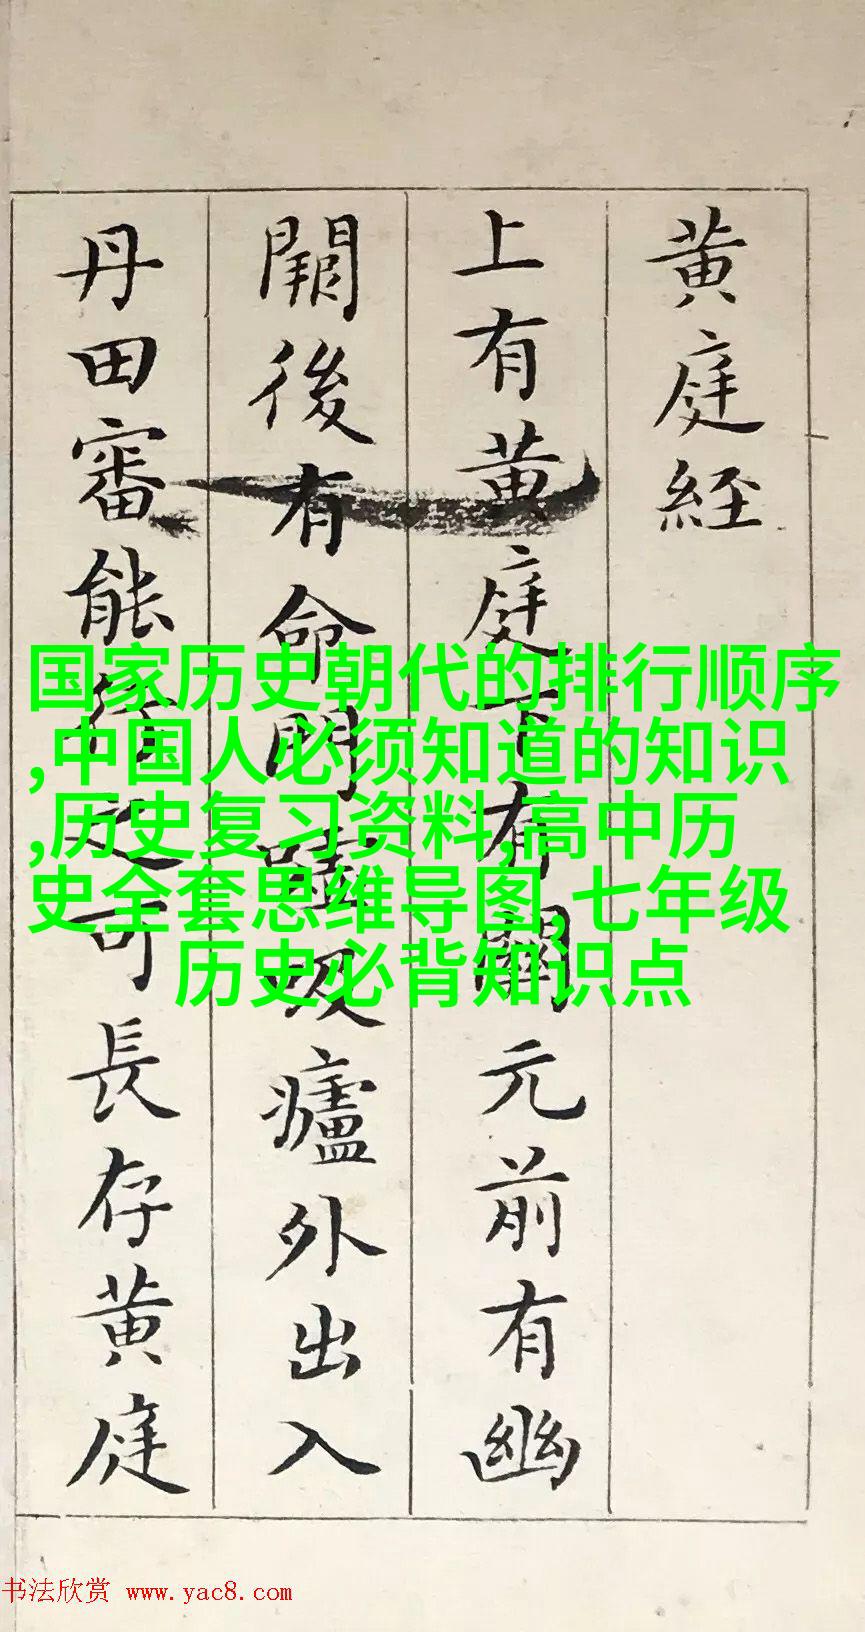 黄庭経
上有黄庭下有關元前有幽
闕後有命門嘘吸廬外出入
丹田審能行之可長存黄庭
国家历史朝代的排行顺序
,中国人必须知道的知识
,历史复习资料,高中历
史全套思维导图,七年级
历史必背知识点
书法欣赏 www.yac8.com